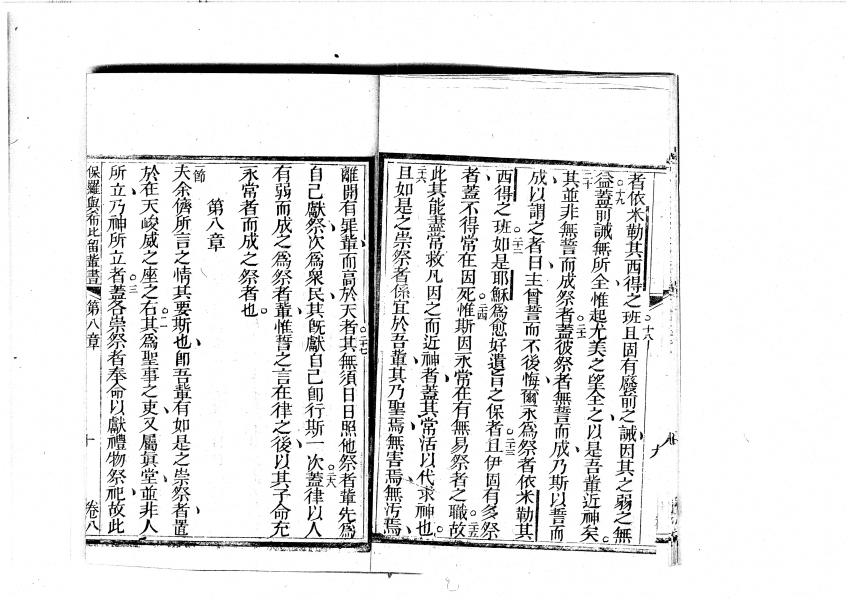 者依米勒其西得之班且固有廢前之誡因其之弱之無
益蓋前誡無所全惟起尤美之望全之以是吾輩近神矣
其並非無誓而成祭者蓋彼祭者無誓而成乃斯以誓而
成以謂之者曰主曾誓而不後悔爾永為祭者依米勒其
西得之班如是耶穌為愈好遺旨之保者且伊固有多祭
者蓋不得常在因死惟斯因永常在有無易祭者之職故
此其能盡常救凡因之而近神者蓋其常活以代求神也
且如是之崇祭者係宜於吾輩其乃聖焉無害焉無污焉
離開有罪輩而高於天者其無須日日照他祭者輩先為
自己獻祭次為眾民其既獻自己即行斯一次蓋律以人
有弱而成之為祭者輩惟誓之言在律之後以其子命充
永常者而成之祭者也
第八章
夫余儕所言之情其要斯也即吾輩有如是之崇祭者置
於在天峻威之座之右其為聖事之吏又屬真堂並非人
所立乃神所立者蓋各崇祭者奉命以獻禮物祭祀故此
保羅與希比留輩書 第八章 十 卷八